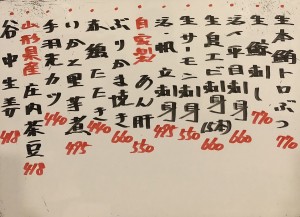 生本鮪トロぶつ 770
生 鯵 刺し 770
活〆平目刺身 660
生良エビ刺身(5本) 660
生サーモン刺身 550
活・帆立刺身 495
自家製 あん肝 550
ぶりかま焼き 660
赤鶏たたき 440
いかと里芋煮 495
手羽先カツ 440
山形県産 庄内茶豆 418
谷中生姜 418